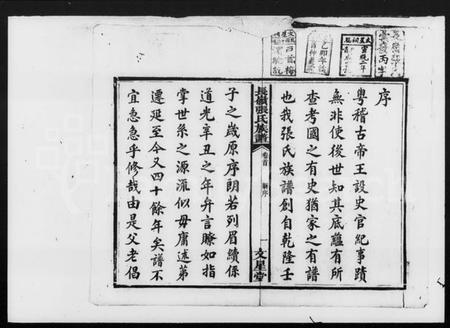 序
粵稽古帝王設史官紀事蹟
無非使後世知其底蘊有所
查考國之有史猶家之有譜
也我張氏族譜創自乾隆壬
長嶺張氏族譜
卷首
新序
一
文星堂
子之歲原序朗若列眉續係
道光辛丑之年弁言瞭如指
掌世系之源流似毋庸述第
遷延至今又四十餘年矣譜不
宜急急乎修哉由是父老倡